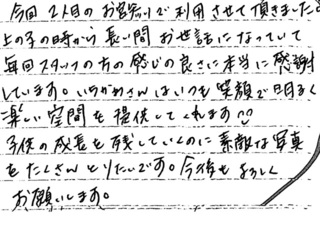 今回2人目のお宮参りで利用させて頂きました。
上の子の時から長い間お世話になっていて
毎回スタッフの方の感じの良さに本当に感謝
しています。いちかわさんはいつも笑顔で明るく
楽しい空間を提供してくれます
子供の成長を残していくのに素敵な写真
をたくさんとりたいです。今後もよろしく
お願いします。